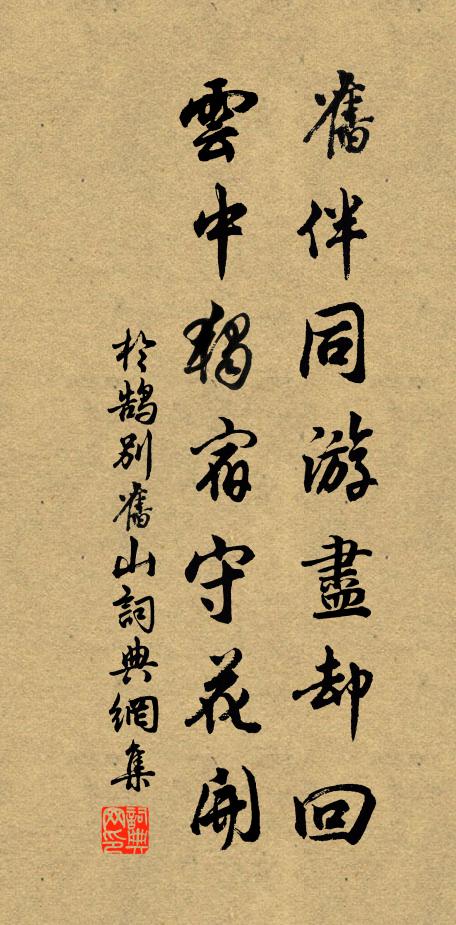 舊伴同游盡却回
雲中獨宿守花開
於鵠別舊山詞典網集
詞典
网印